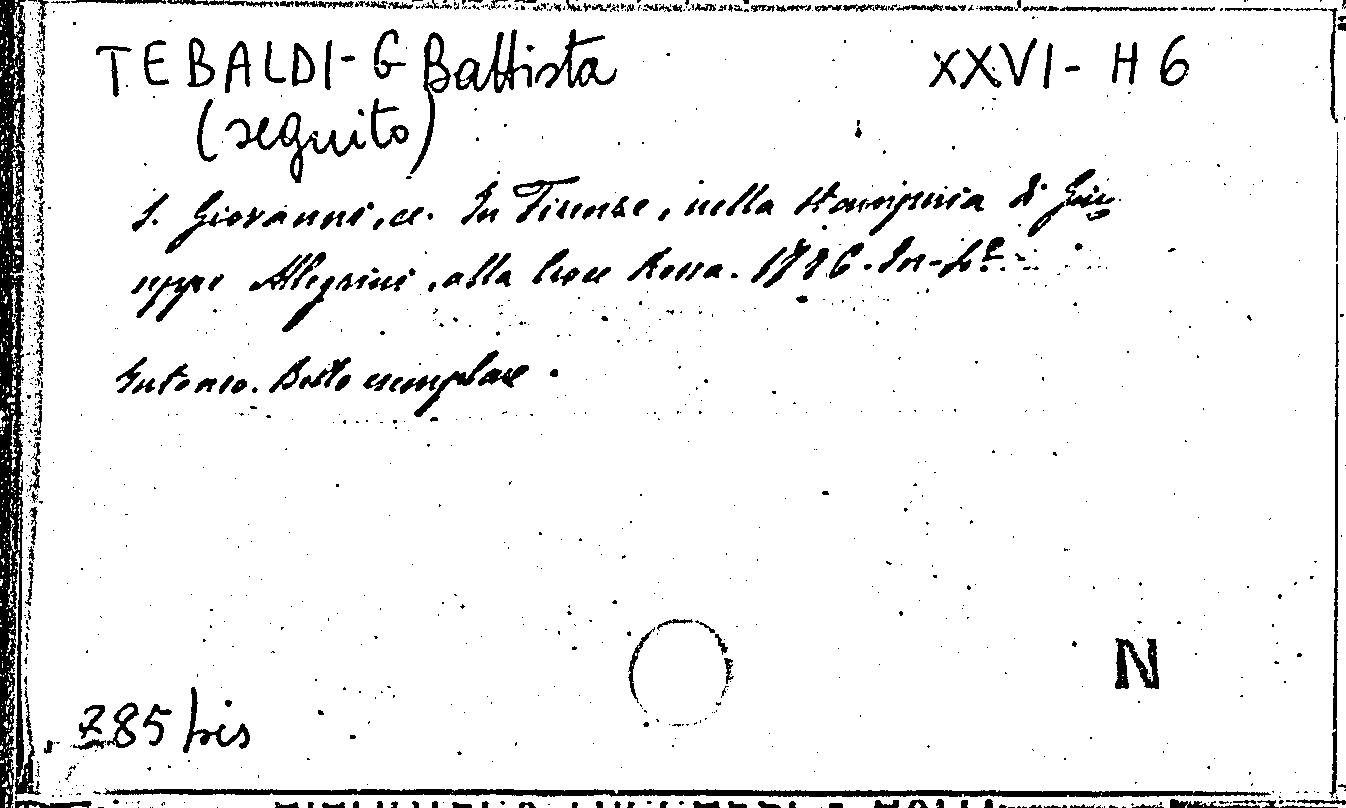 TEBALDI-G Battista XXVI-H6
(seguito)
S. Giovanni, ec. In Firenze, nella stamperia di Giu
seppe Allegrini, alla Croce Rossa. 1786. In-4º.
Intonso. Bello esemplare.
N
285 bis